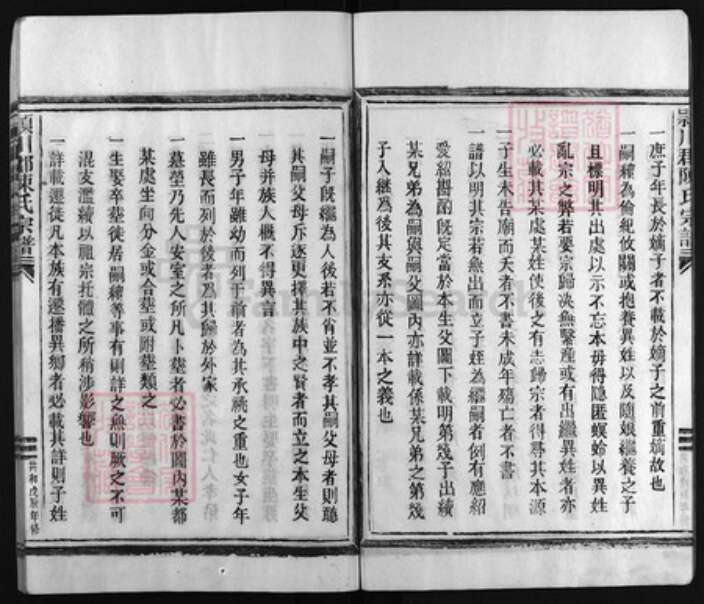 潁川郡陳氏宗譜
一庶子年長於嫡子者不載於嫡子之前重嫡故也
一嗣續為倫紀攸關或抱養異姓以及隨娘繼養之子
且樣明其出處以示不忘本毋得隱匿螟蛉以異姓
亂宗之弊若要宗歸渙無繫產或有出繼異姓者亦
必載其某處某姓使後之有志歸宗者得尋其本源
一子生未告廟而夭者不書未成年殤亡者不書
一譜以明其宗若無出而立子姪為繼嗣者例有應紹
愛紹斟酌既定當於本生父圖下載明第幾子出續
某兄弟為嗣與嗣父圖內亦詳載係某兄弟之第幾
子入繼為後其支系亦從一本之義也
一嗣子既繼為人後若不肖並不孝其嗣父母者則聽
其嗣父母斥逐更擇其族中之賢者而立之本生父
母并族人概不得異言
一男子年雖幼而列于前者為其承祧之重也女子年
雖長而列於後者為其歸於外家
一墓塋乃先人安室之所凡卜塟者必書於圖內某都
某處坐向分金或合塟或附塟類之
一生娶卒塟徙居嗣續等事有則詳之無則厥之不可
混支濫續以祖宗托體之所稍涉影響也
一詳載遷徙凡本族有遷播異鄉者必載其詳則子姓
潁川郡陳氏宗譜
共和戊辰年修